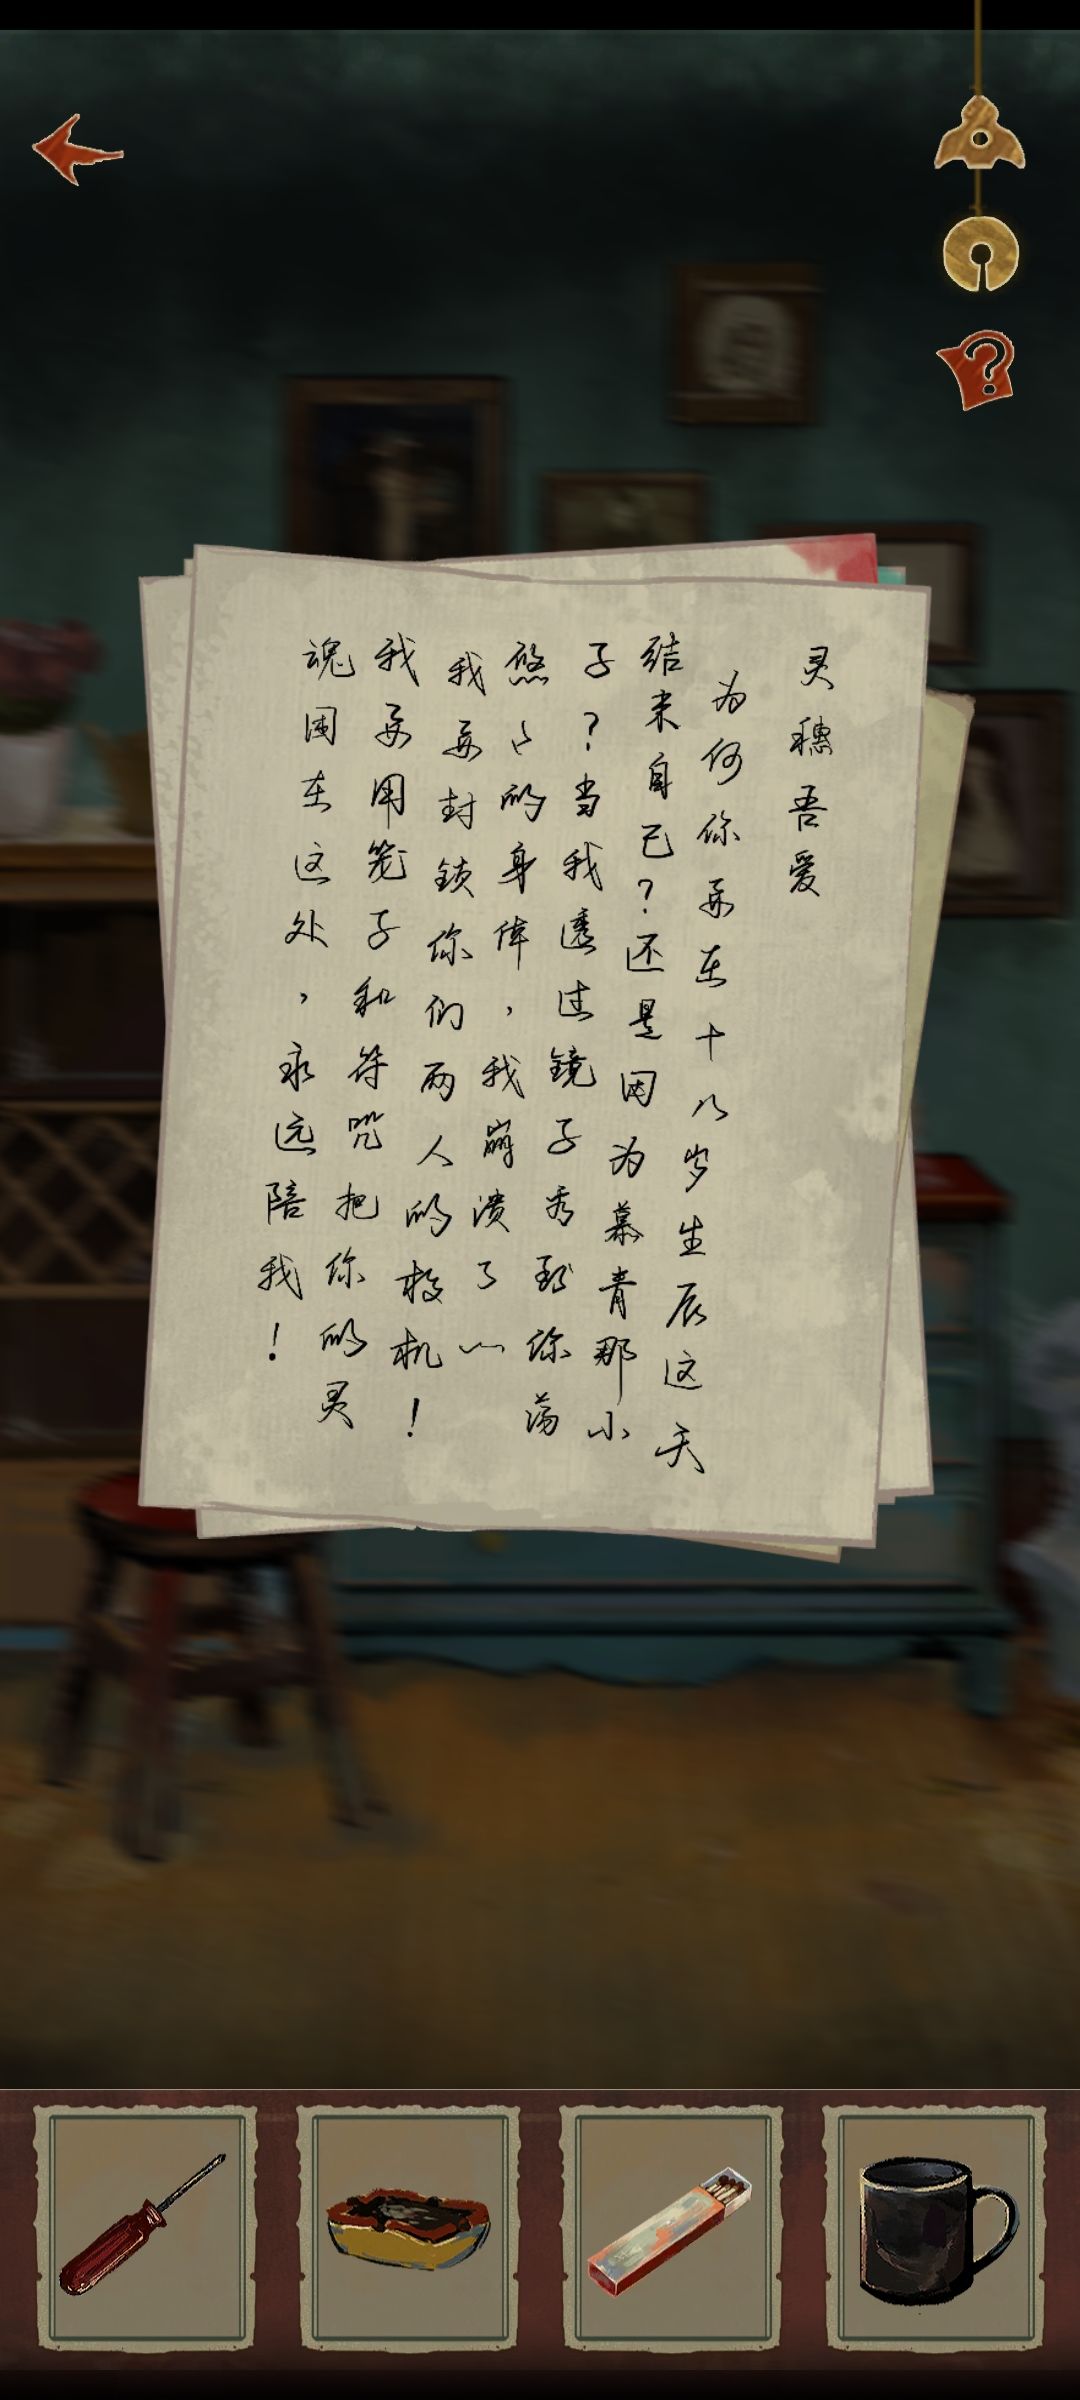 灵穗吾爱
为何你要在十八岁生辰这天
结束自己？还是因为慕青那小
子？当我透过镜子看到你荡
悠々的身体，我崩溃了～
我要封锁你们两人的机！
我要用笼子和符咒把你的灵
魂困在这处，永远陪我！